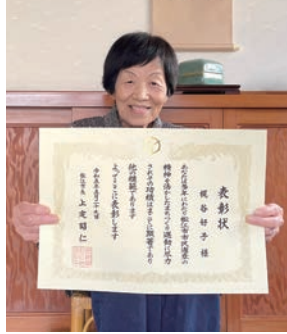 表彰状
梶谷好子様
あなたは多年にわたり松江市市民憲章の
精神を活かしたまちづくり運動に尽力
されその功績はまことに顕著であり
他の模範であります
よってここに表彰します
令和五年五月二十九日
松江市長 上定昭仁